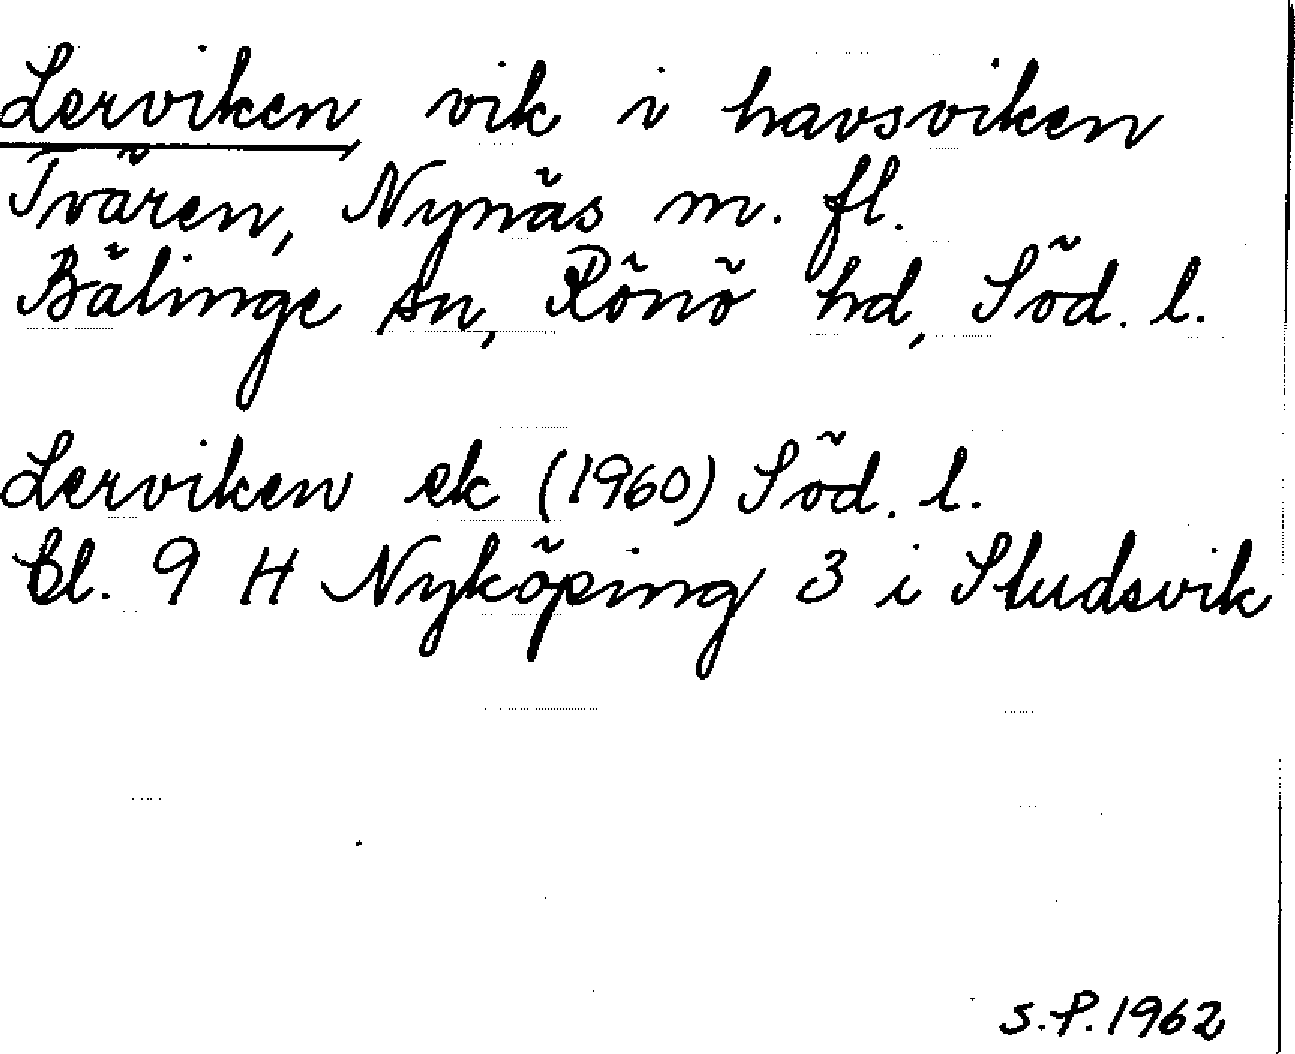 Lerviken, vik i havsviken
Tvären, Nynäs m. fl.
Bälinge sn, Rönö hd, Söd. l.
Lerviken ek (1960) Söd. l.
bl. 9 H Nyköping 3 i Studsvik
S.P. 1962